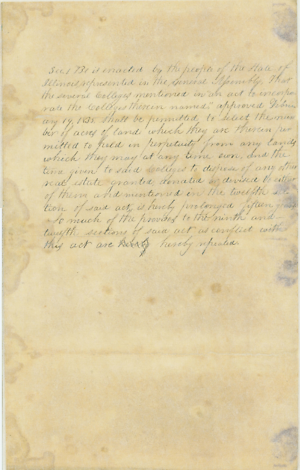 Sec 1 Be it enacted by the people of the State of
Illinois, represented in the General Assembly, That
the several Colleges mentioned in "an act to incorpo-
rate the Colleges therein named" approved Febru-
ary 9, 1835 shall be permitted to select the num-
ber of acres of land which they are therein per-
mitted to hold in perpetuity from any lands
which they may at any time own, and the
time given to said colleges to dispose of any other
real estate granted donated or devised to either
of them and mentioned in the twelfth sec-
tion of said act, is hereby prolonged fifteen years
So much of the provisos to the ninth and
twelfth sections of said act as conflict with
this act are hereby repealed.